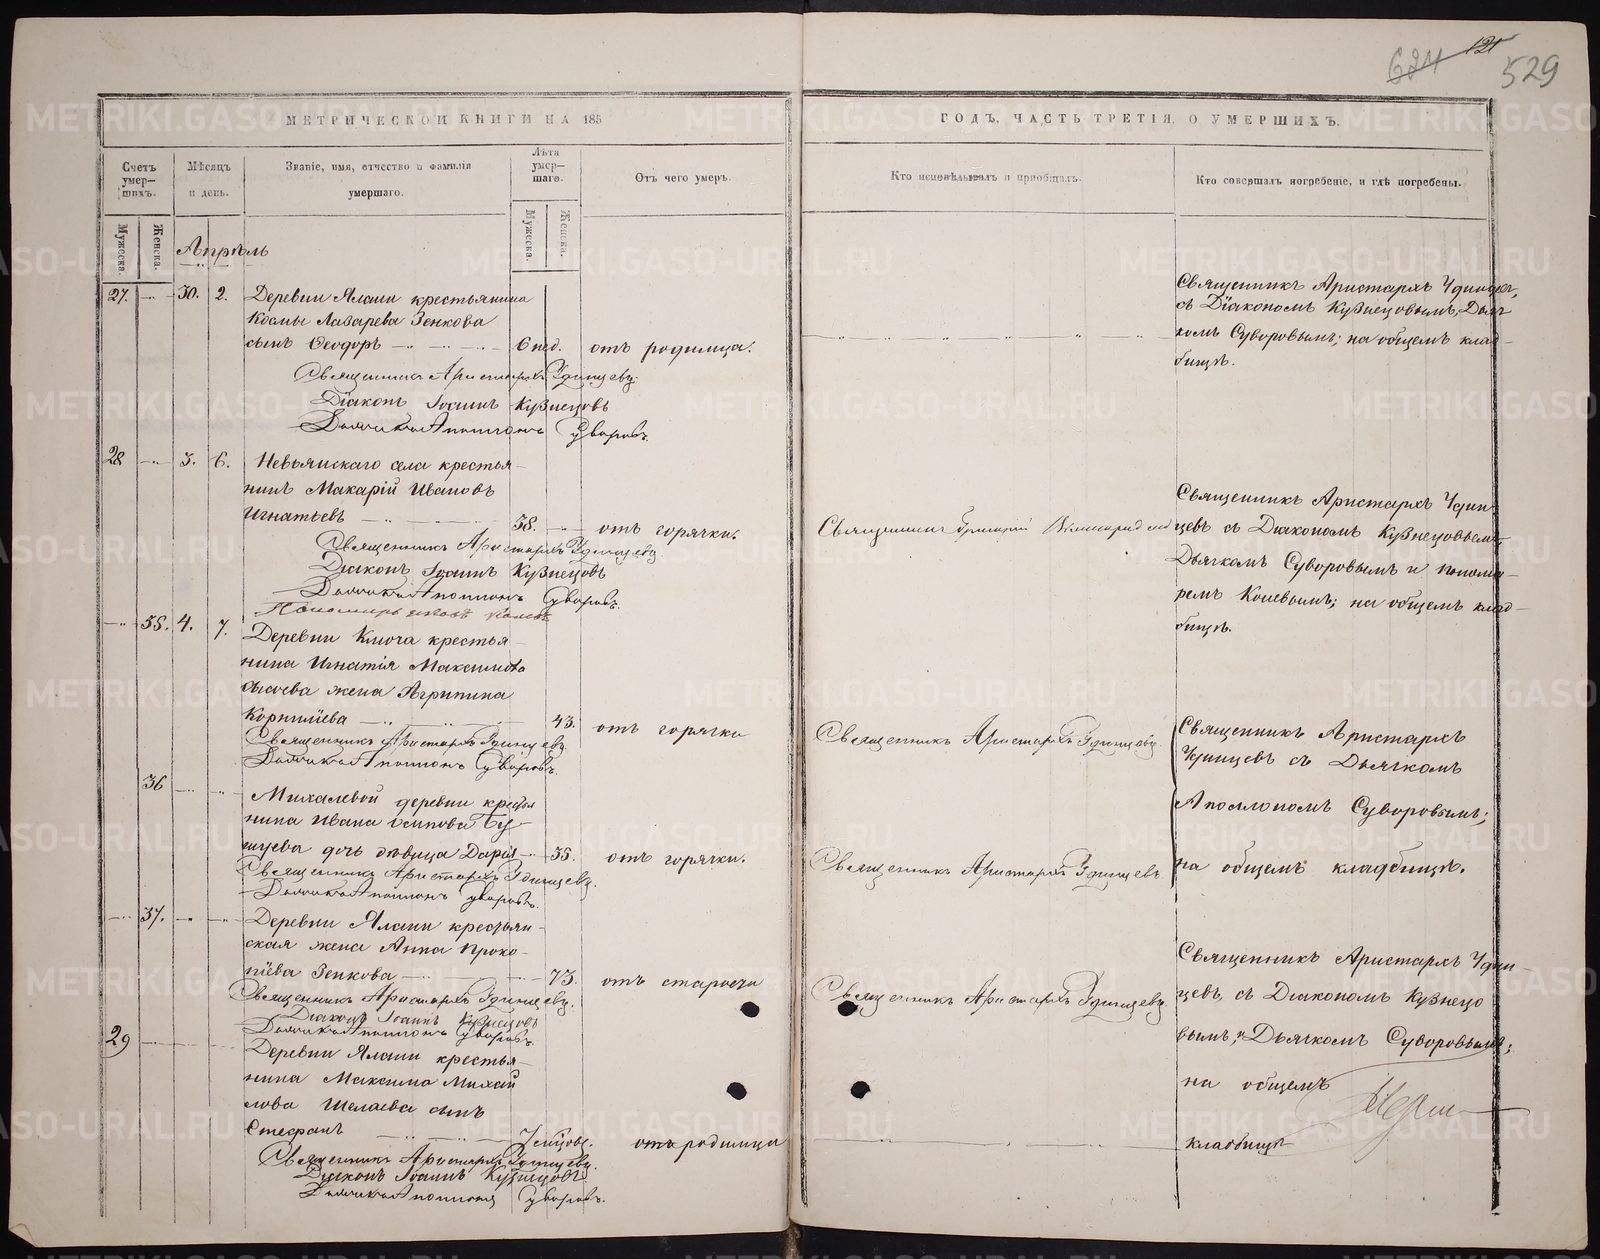 121
624
529
МЕТРИЧЕСКОЙ КНИГИ НА 185
ГОДЪ, ЧАСТЬ ТРЕТІЯ, О УМЕРШИХЪ.
Счетъ умер-шихъ.
Мѣсяцъ и день.
Званіе, имя, отчество и фамилія умершаго.
Лѣта умер-шаго.
Отъ чего умеръ.
Кто исповѣдывалъ и пріобщалъ.
Кто совершалъ погребеніе, и гдѣ погребены.
Мужеска.
Женска.
Мужеска.
Женска.
Апрѣль
27. 30. 2. Деревни Ялани крестьянина
Космы Лазарева Зенкова
сынъ Ѳеодоръ 6 нед. отъ родимца.
Священникъ Аристархъ Удинцевъ
Діаконъ Іоаннъ Кузнецовъ
Дьячекъ Аполлонъ Суворовъ.
Священникъ Аристархъ Удинцевъ,
съ Діакономъ Кузнецовымъ, Дьяч-
комъ Суворовымъ; на общемъ клад-
бищѣ.
28 3. 6. Невьянскаго села крестья-
нинъ Макарій Ивановъ
Игнатьевъ 58. отъ горячки.
Священникъ Аристархъ Удинцевъ.
Діаконъ Іоаннъ Кузнецовъ
Дьячекъ Аполлонъ Суворовъ.
Пономарь
Священникъ
Священникъ Аристархъ Удин-
цевъ съ Діакономъ Кузнецовымъ,
Дьячкомъ Суворовымъ и понома-
ремъ Коневымъ; на общемъ клад-
бищѣ.
35. 4. 7. Деревни Ключа крестья-
нина Игнатія Максимова
жена Агрипина
Корнилїева 43. отъ горячки
Священникъ Аристархъ Удинцевъ.
Дьячекъ Аполлонъ Суворовъ.
Священникъ Аристархъ Удинцевъ.
Священникъ Аристархъ
Удинцевъ съ Дьячкомъ
Аполлономъ Суворовымъ;
на общемъ кладбищѣ.
36 Михалевой деревни крестья
нина Ивана Осипова
дочь дѣвица Дарія 35. отъ горячки.
Священникъ Аристархъ Удинцевъ.
Дьячекъ Аполлонъ Суворовъ.
Священникъ Аристархъ Удинцевъ
37. Деревни Ялани крестьян-
ская жена Анна Проко-
пїева Зенкова 73. отъ старости
Священникъ Аристархъ Удинцевъ.
Діаконъ Іоаннъ Кузнецовъ
Дьячекъ Аполлонъ Суворовъ.
Священникъ Аристархъ Удинцевъ.
Священникъ Аристархъ Удин-
цевъ, съ Діакономъ Кузнецо
вымъ, и Дьячкомъ Суворовымъ;
на общемъ
кладбищѣ
29 Деревни Ялани крестья-
нина Максима Михай
лова Шелаева сынъ
Стефанъ отъ родимца
Священникъ Аристархъ Удинцевъ.
Діаконъ Іоаннъ Кузнецовъ
Дьячекъ Аполлонъ Суворовъ.
METRIKI.GASO-URAL.RU